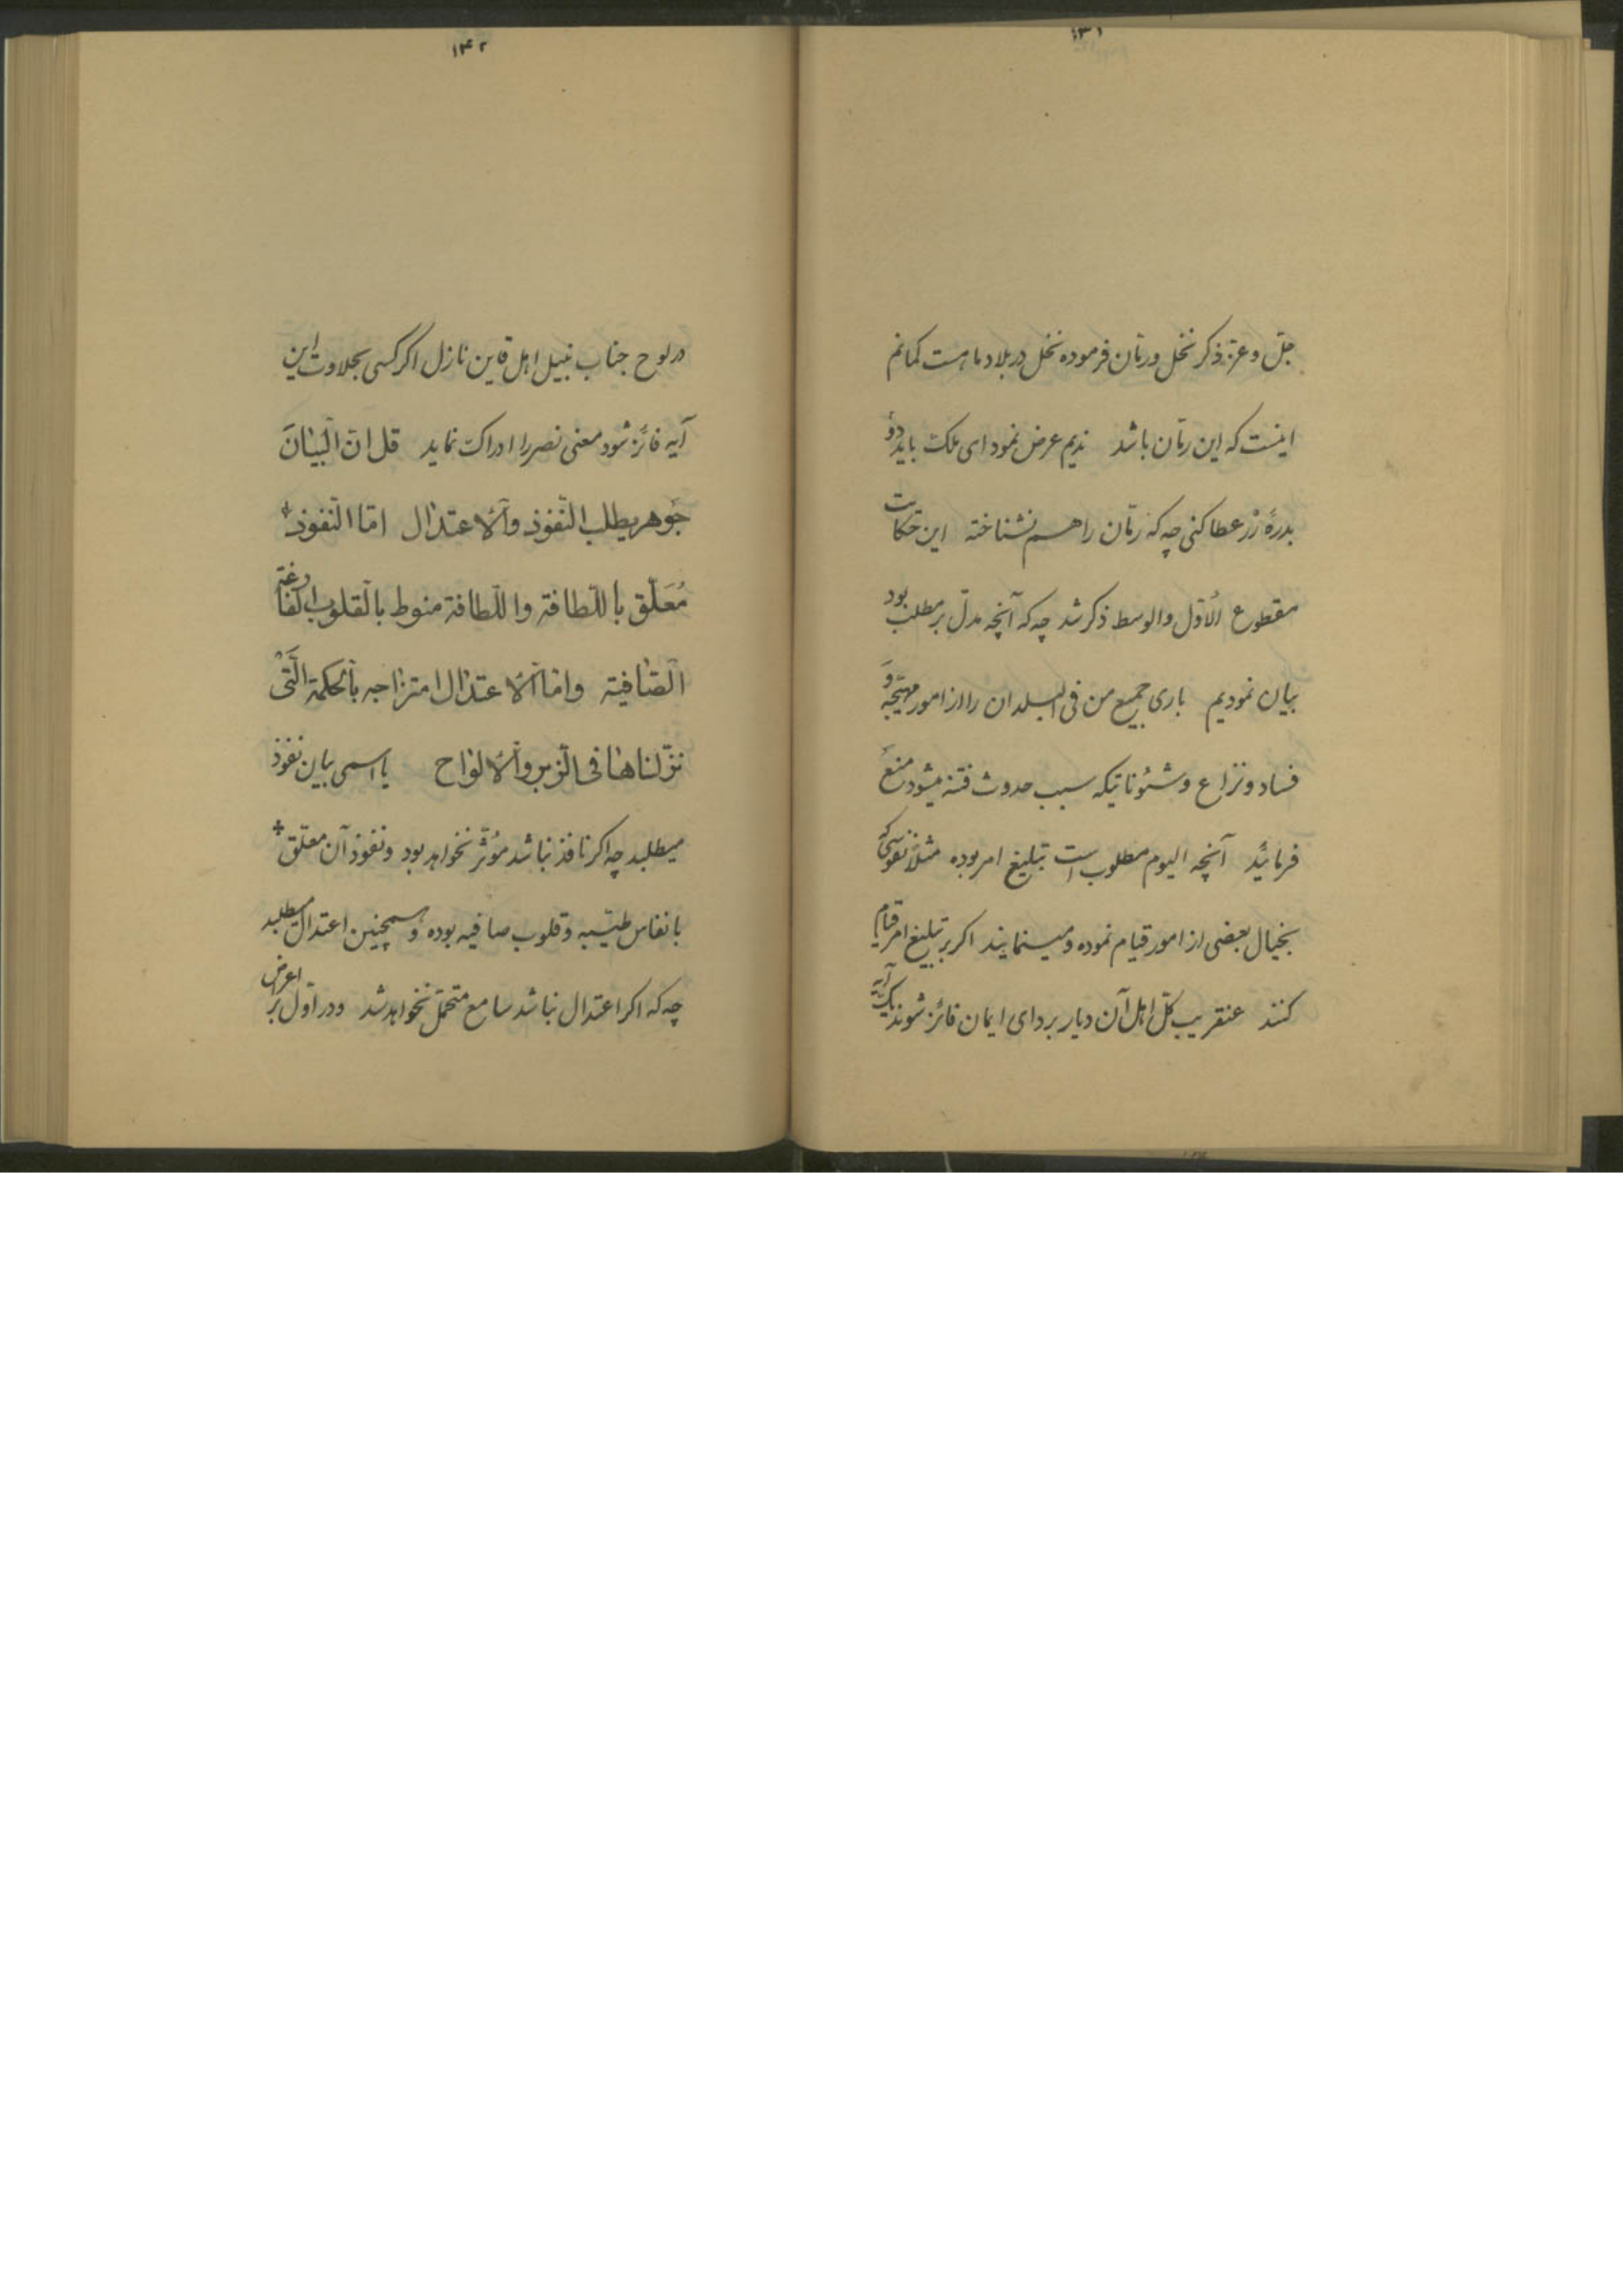 جلّ و عزّ ذکر نخل و رمّان فرموده نخل در بلاد ما هست گمانم
اینست که این رمّان باشد ندیم عرض نمود ای ملک باید دو
بدرهٔ زر عطا کنی چه که رمّان را هم نشناخته این حکایت
مقطوع الأوّل والوسط ذکر شد چه که آنچه مدلّ بر مطلب بود
بیان نمودیم باری جمیع من فی البلدان را از امور مهیّجه و
فساد و نزاع و شئوناتیکه سبب حدوث فتنه میشود منع
فرمائید آنچه الیوم مطلوب است تبلیغ امر بوده مثلاً نفوسی که
بخیال بعضی از امور قیام نموده و مینمایند اکر بر تبلیغ امر قیام
کنند عنقریب کلّ اهل آن دیار بردای ایمان فائز شوند یک آیه
۱۴۲
در لوح جناب نبیل اهل قاین نازل اکر کسی بحلاوت این
آیه فائز شود معنی نصر را ادراک نماید قل انّ البیان
جوهر یطلب النّفوذ والاعتدال امّا النّفوذ
مُعَلّق باللّطافة واللّطافة منوط بالقلوب الفارغة
الصّافیة وامّا الاعتدال امتزاجه بالحکمة الّتی
نزّلناها فی الزّبر والالواح یا اسمی بیان نفوذ
میطلبد چه اکر نافذ نباشد مؤثّر نخواهد بود و نفوذ آن معلّق
بانفاس طیّبه و قلوب صافیه بوده و همچنین اعتدال میطلبد
چه که اکر اعتدال نباشد سامع متحمّل نخواهد شد و در اوّل بر اعراض